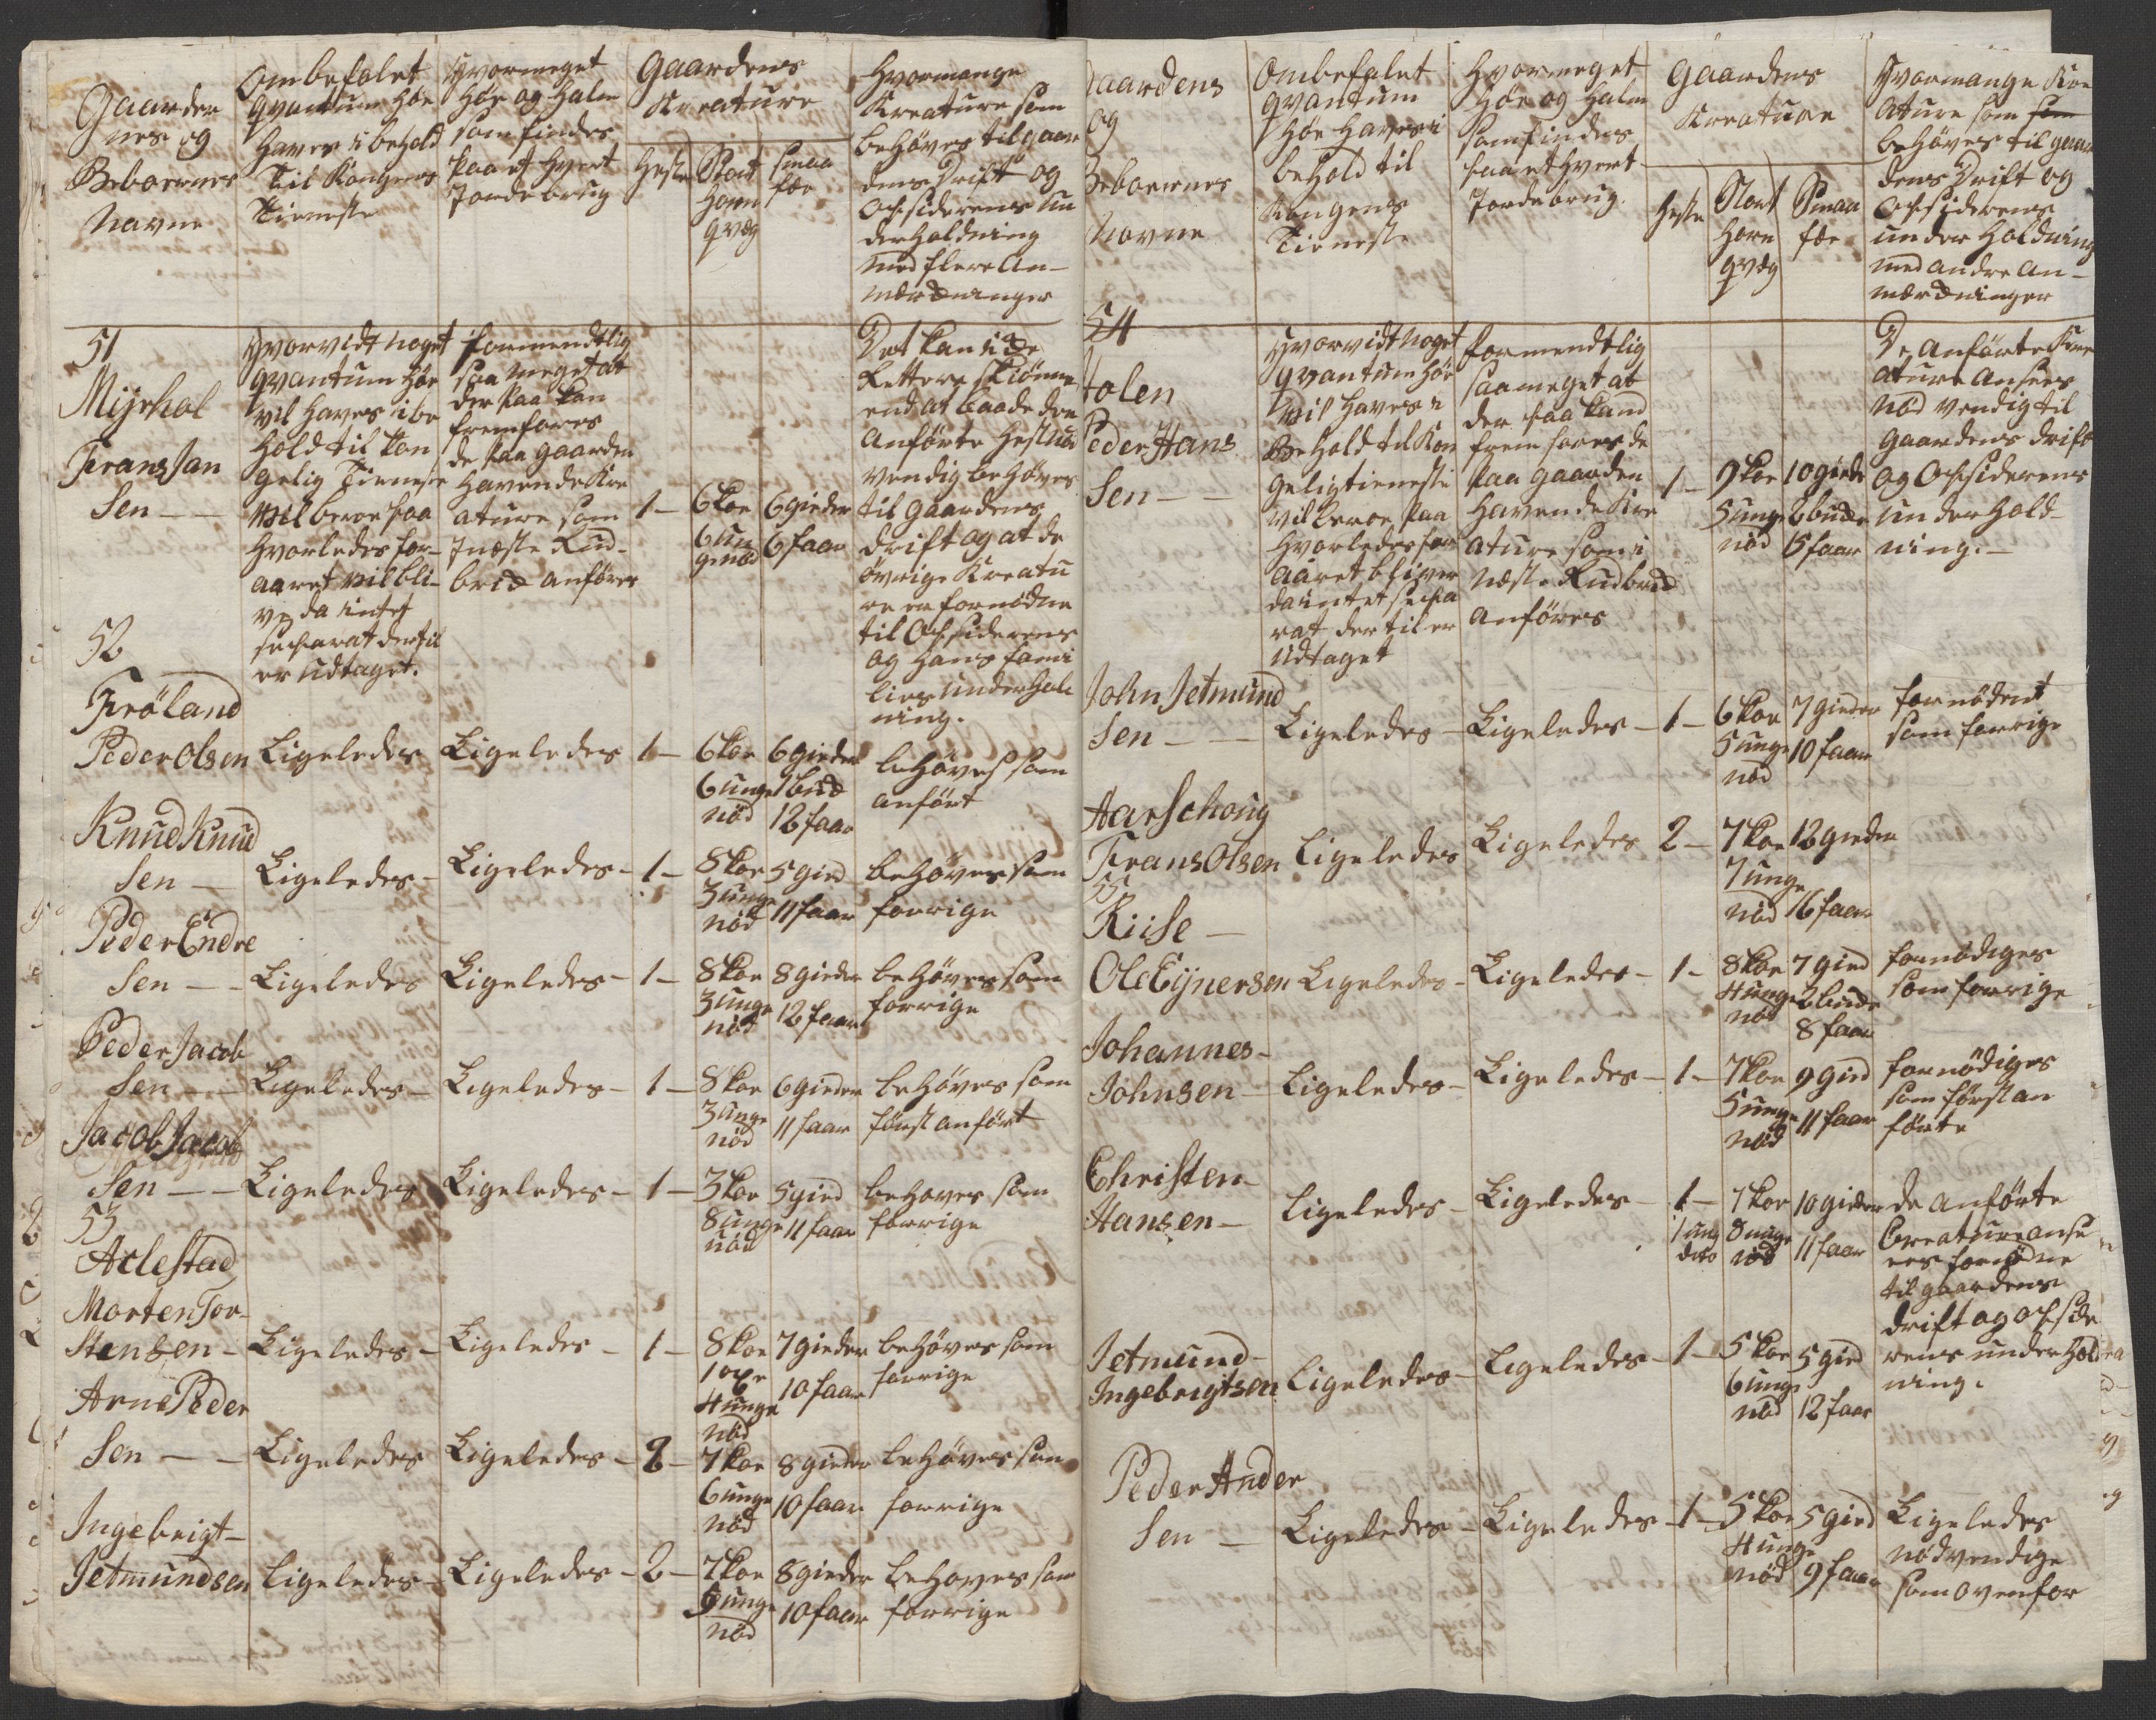 Gaarder
nes og
Beboernes
Navne
Ombefalet
Qvantum Høe
Haves i behold
Til Kongens
Tieneste
Hvormeget
Høe og Halm
som findes
paa et hvert
Jordebrug
Gaardens
Kreature
Heste
Stort
Horn
qvæg
Smaa
fæe
Hvormange
Kreature som
behöves til gaar
dens Drift og
Opsiderens Un
derholdning
med flere An-
mærkninger
51
Myrhol
Frans Jan
Sen - -
Hvorvidt noget
qvantum Høe
vil haves i be
hold til kon
gelig Tieneste
vil beroe paa
hvorledes for-
aaret vil bli-
ve da intet
separat dertil
er udtaget.
formendtlig
saa meget at
der paa kan
fremfores
de paa gaarden
havende Kre
ature som
i næste Rud-
brik anföres
1 -
6 koe
6 un
genød
6 gieder
6 faar
Det kan icke
rettere skiönnes
end at baade den
anförte Hest nød
vendig behöves
til gaardens
drift og at de
övrige Kreatu
re er fornødne
til Opsiderens
og hans fami
lies underhold
ning.
52
Fröland
Peder Olsen
Ligeledes
Ligeledes
1 -
6 koe
6 unge
nød
6 gieder
1 buk
12 faar
behöves som
anfört
Knud Knud
Sen -
Ligeledes -
Ligeledes -
1 -
8 koe
3 unge
nød
5 gied
11 faar
behöves som
forrige
Peder Endre
Sen - -
Ligeledes
Ligeledes -
1 -
8 koe
3 unge
nød
8 gieder
12 faar
behöves som
forrige
Peder Jacob
Sen -
Ligeledes -
Ligeledes -
1 -
8 koe
3 unge
nød
6 gieder
11 faar
behöves som
först anfört
Jacob Jacob
Sen - -
Ligeledes
Ligeledes -
1 -
3 koe
8 unge
nød
5 gied
11 faar
behoves som
forrige
53
Aclestad
Morten Tor-
Stensen -
Ligeledes -
Ligeledes -
1 -
8 koe
1 oxe
4 unge
nød
7 gieder
10 faar
behöves som
forrige
Arne Peder
Sen - -
Ligeledes
Ligeledes -
2 -
7 koe
6 unge
nød
8 gieder
10 faar
behöves som
forrige
Ingebrigt -
Jetmundsen
Ligeledes -
Ligeledes -
2 -
7 koe
5 unge
nød
8 gieder
10 faar
behoves som
forrige
Gaardens
og
Beboernes
Navne
Ombefalet
qvantum
Höe Haves i
behold til
Kongens
Tieneste
Hvormeget
Höe og Halm
som findes
paa et hvert
Jordebrug.
Gaardens
Kreature
Heste
Stort
Horn
qvæg
Smaa
fæe
Hvormange Kre
ature som som
behöves til gaar
dens Drift og
Opsiderens
underholdning
med andre An-
mærkninger
54
Holen
Peder Hans
Sen - -
Hvorvidt noget
qvantum Höe
vil haves i
Behold til Kon
gelig tieneste
vil beroe paa
hvorledes for
aaret bliver
da intet sepa
rat der til er
udtaget
formendtlig
saa meget at
der paa kand
frem föres de
paa gaarden
havende Kre
ature som i
næste Rudbrik
anföres
1 -
9 koe
5 unge
nød
10 gieder
2 bucke
15 faar
De anförte Kre
ature ansees
nødvendig til
gaardens drift
og Opsiderens
underhold-
ning. -
John Jetmund
Sen - -
Ligeledes -
Ligeledes -
1 -
6 koe
5 unge
nød
7 gieder
10 faar
fornødent
som forrige
Aarschoug
Frans Olsen
Ligeledes
Ligeledes
2 -
7 koe
7 unge
nød
12 gieder
16 faar
55
Riise -
Ole Eynersen
Ligeledes -
Ligeledes -
1 -
8 koe
4 unge
nød
7 gied
2 bucke
8 faar
fornødiges
som forrige
Johannes -
Johnsen -
Ligeledes -
Ligeledes -
1 -
7 koe
5 unge
nød
9 gied
11 faar
fornødiges
som först an
förte
Christen -
Hansen -
Ligeledes -
Ligeledes -
1 -
1 ung
dito
7 koe
8 unge
nød
10 gieder
11 faar
de anförte
Creature anse
ees fornødne
til gaardens
drift og opside
rens underhold
ning.
Jetmund -
Ingebrigtsen
Ligeledes -
Ligeledes -
1 -
5 koe
6 unge
nød
5 gied
12 faar
Peder Ander
Sen -
Ligeledes -
Ligeledes -
1 -
5 koe
4 unge
nød
5 gied
9 faar
Ligeledes
nødvendige
som ovenfor